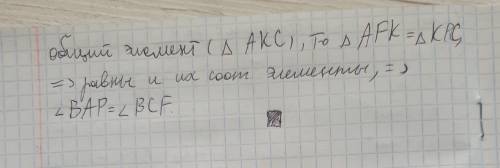 общий элемент (△ AKC), то △ AFK = △ KPC,
=> равны и их соот элементы, =>
∠BAP = ∠BCF.